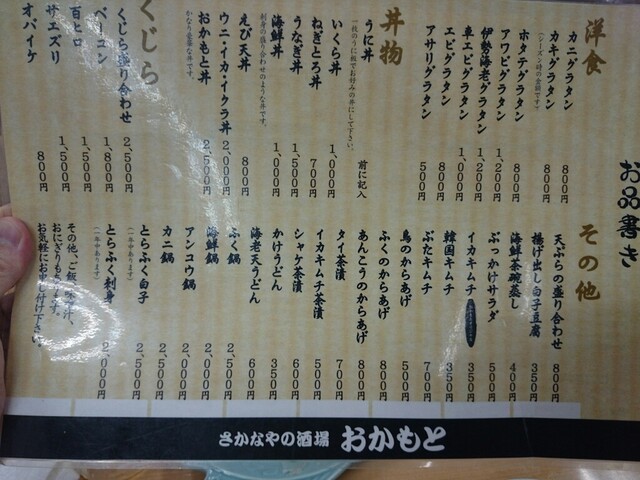 お品書き
洋食
カニグラタン 800円
カキグラタン 800円
(シーズン時の金額です)
ホタテグラタン 800円
アワビグラタン 1,200円
伊勢海老グラタン 1,200円
車エビグラタン 1,000円
エビグラタン 800円
アサリグラタン 500円
丼物
うに丼 前に記入
一枚のうに板でお好みの丼にして下さい。
いくら丼 1,000円
ねぎとろ丼 700円
うなぎ丼 1,500円
海鮮丼 1,000円
刺身の盛り合わせのような丼です。
えび天丼 800円
ウニ・イカ・イクラ丼 2,000円
おかもと丼 2,500円
かなり豪華な丼です。
くじら
くじら盛り合わせ 2,500円
ベーコン 1,800円
百ヒロ 1,500円
サエズリ 1,500円
オバイケ 800円
その他
天ぷらの盛り合わせ 800円
揚げ出し白子豆腐 350円
海鮮茶碗蒸し 400円
ぶっかけサラダ 500円
イカキムチ 350円
韓国キムチ 350円
ぶたキムチ 700円
鳥のからあげ 500円
ふくのからあげ 800円
あんこうのからあげ 800円
タイ茶漬 700円
イカキムチ茶漬 500円
シャケ茶漬 600円
かけうどん 350円
海老天うどん 600円
ふく鍋 2,500円
海鮮鍋 2,000円
アンコウ鍋 2,000円
カニ鍋 2,500円
とらふく白子 2,500円
(一年中あります)
とらふく刺身 2,000円
(一年中あります)
その他、ご飯、味噌汁、
おにぎりもあります。
お気軽にお申し付け下さい。
さかなやの酒場 おかもと